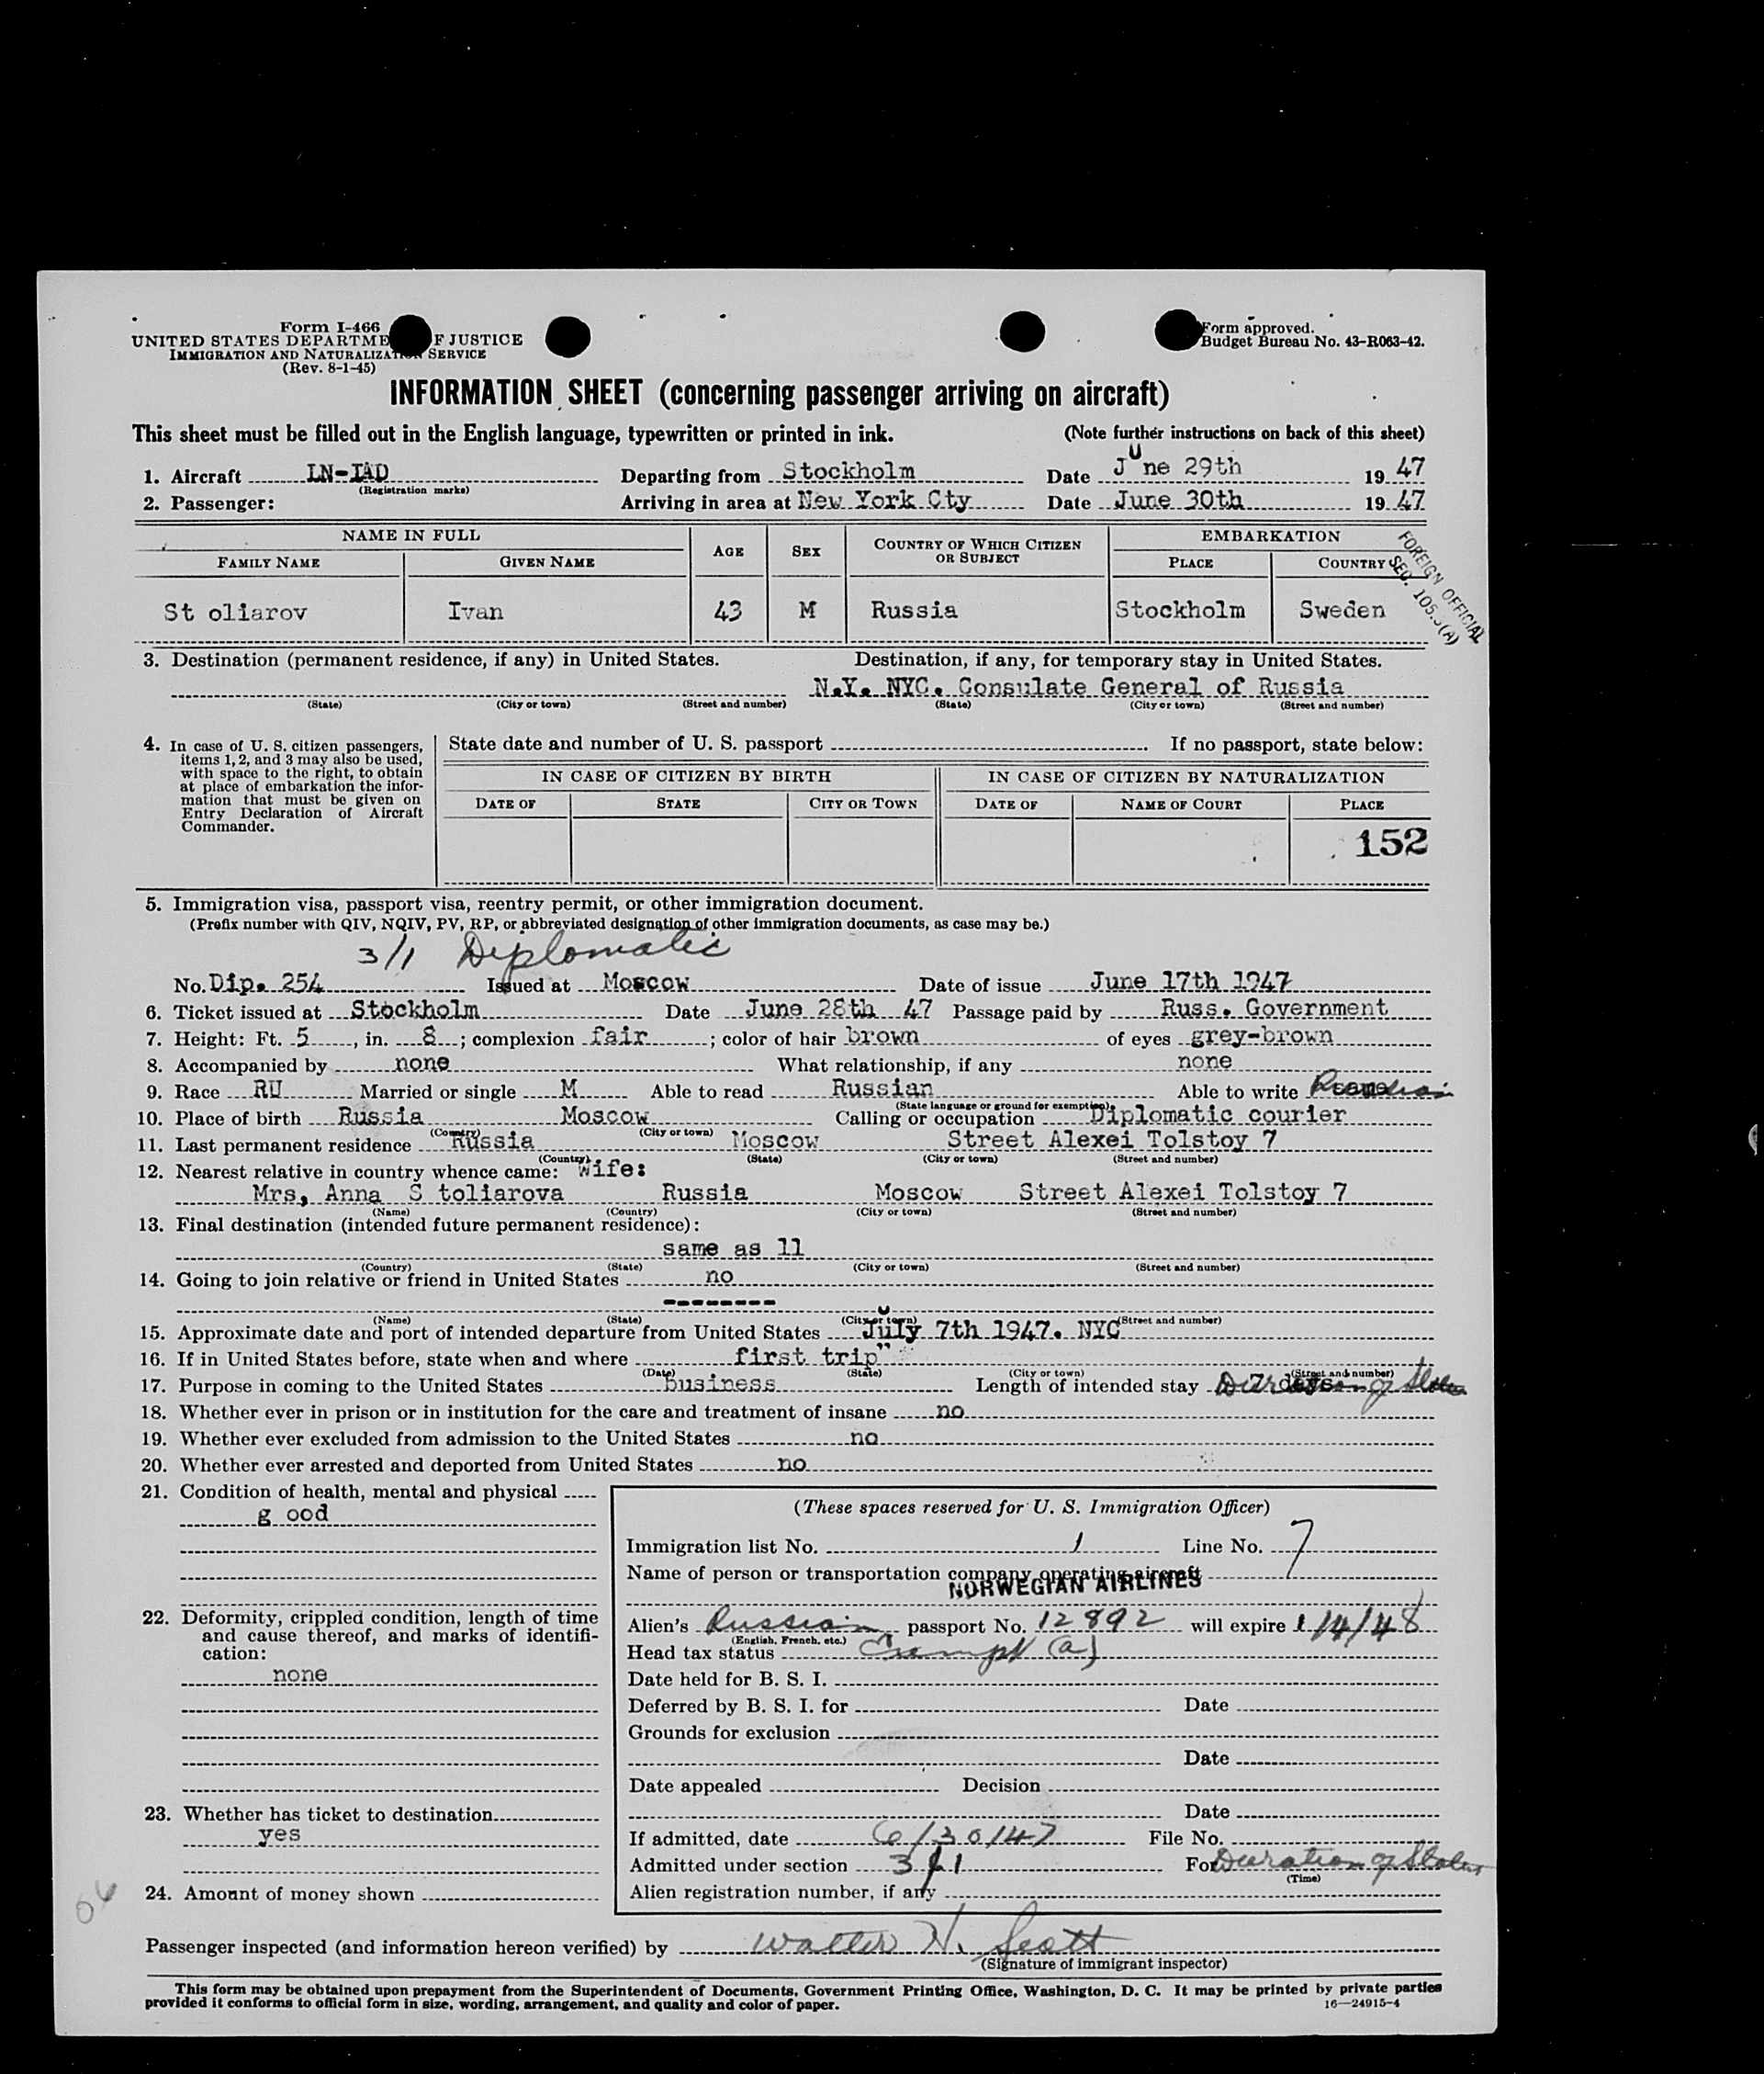 Form I-466
UNITED STATES DEPARTME F JUSTICE
IMMIGRATION AND NATURALIZATION SERVICE
(Rev. 8-1-45)
Form approved.
Budget Bureau No. 43-R063-42.
INFORMATION SHEET (concerning passenger arriving on aircraft)
This sheet must be filled out in the English language, typewritten or printed in ink. (Note further instructions on back of this sheet)
1. Aircraft LN-IAD Departing from Stockholm Date June 29th 1947
(Registration marks)
2. Passenger: Arriving in area at New York Cty Date June 30th 1947
NAME IN FULL AGE SEX COUNTRY OF WHICH CITIZEN OR SUBJECT EMBARKATION
FAMILY NAME GIVEN NAME PLACE COUNTRY
FOREIGN OFFICIAL
SEC. 105.3(A)
St oliarov Ivan 43 M Russia Stockholm Sweden
3. Destination (permanent residence, if any) in United States. Destination, if any, for temporary stay in United States.
N.Y. NYC. Consulate General of Russia
(State) (City or town) (Street and number) (State) (City or town) (Street and number)
4. In case of U. S. citizen passengers, items 1, 2, and 3 may also be used, with space to the right, to obtain at place of embarkation the information that must be given on Entry Declaration of Aircraft Commander.
State date and number of U. S. passport If no passport, state below:
IN CASE OF CITIZEN BY BIRTH IN CASE OF CITIZEN BY NATURALIZATION
DATE OF STATE CITY OR TOWN DATE OF NAME OF COURT PLACE
152
5. Immigration visa, passport visa, reentry permit, or other immigration document.
(Prefix number with QIV, NQIV, PV, RP, or abbreviated designation of other immigration documents, as case may be.)
3/1 Diplomatic
No. Dip. 254 Issued at Moscow Date of issue June 17th 1947
6. Ticket issued at Stockholm Date June 28th 47 Passage paid by Russ. Government
7. Height: Ft. 5, in. 8; complexion fair; color of hair brown of eyes grey-brown
8. Accompanied by none What relationship, if any none
9. Race RU Married or single M Able to read Russian Able to write same Russian
(State language or ground for exemption)
10. Place of birth Russia Moscow Calling or occupation Diplomatic courier
(Country) (City or town)
11. Last permanent residence Russia Moscow Street Alexei Tolstoy 7
(Country) (State) (City or town) (Street and number)
12. Nearest relative in country whence came: Wife:
Mrs, Anna S toliarova Russia Moscow Street Alexei Tolstoy 7
(Name) (Country) (City or town) (Street and number)
13. Final destination (intended future permanent residence):
same as 11
(Country) (State) (City or town) (Street and number)
14. Going to join relative or friend in United States no
--------
(Name) (State) (City or town) (Street and number)
15. Approximate date and port of intended departure from United States July 7th 1947. NYC
16. If in United States before, state when and where first trip"
(Date) (State) (City or town) (Street and number)
17. Purpose in coming to the United States business Length of intended stay 7 days Duration of Status
18. Whether ever in prison or in institution for the care and treatment of insane no
19. Whether ever excluded from admission to the United States no
20. Whether ever arrested and deported from United States no
21. Condition of health, mental and physical
g ood
22. Deformity, crippled condition, length of time and cause thereof, and marks of identification:
none
23. Whether has ticket to destination
yes
24. Amount of money shown
(These spaces reserved for U. S. Immigration Officer)
Immigration list No. 1 Line No. 7
Name of person or transportation company operating aircraft
NORWEGIAN AIRLINES
Alien's Russian passport No. 12892 will expire 1/4/48
(English, French, etc.)
Head tax status Exempt (a)
Date held for B. S. I.
Deferred by B. S. I. for Date
Grounds for exclusion
Date
Date appealed Decision
Date
If admitted, date 6/30/47 File No.
Admitted under section 3/1 For Duration of Status
(Time)
Alien registration number, if any
Passenger inspected (and information hereon verified) by Walter H. Scott
(Signature of immigrant inspector)
This form may be obtained upon prepayment from the Superintendent of Documents, Government Printing Office, Washington, D. C. It may be printed by private parties
provided it conforms to official form in size, wording, arrangement, and quality and color of paper.
16—24915-4